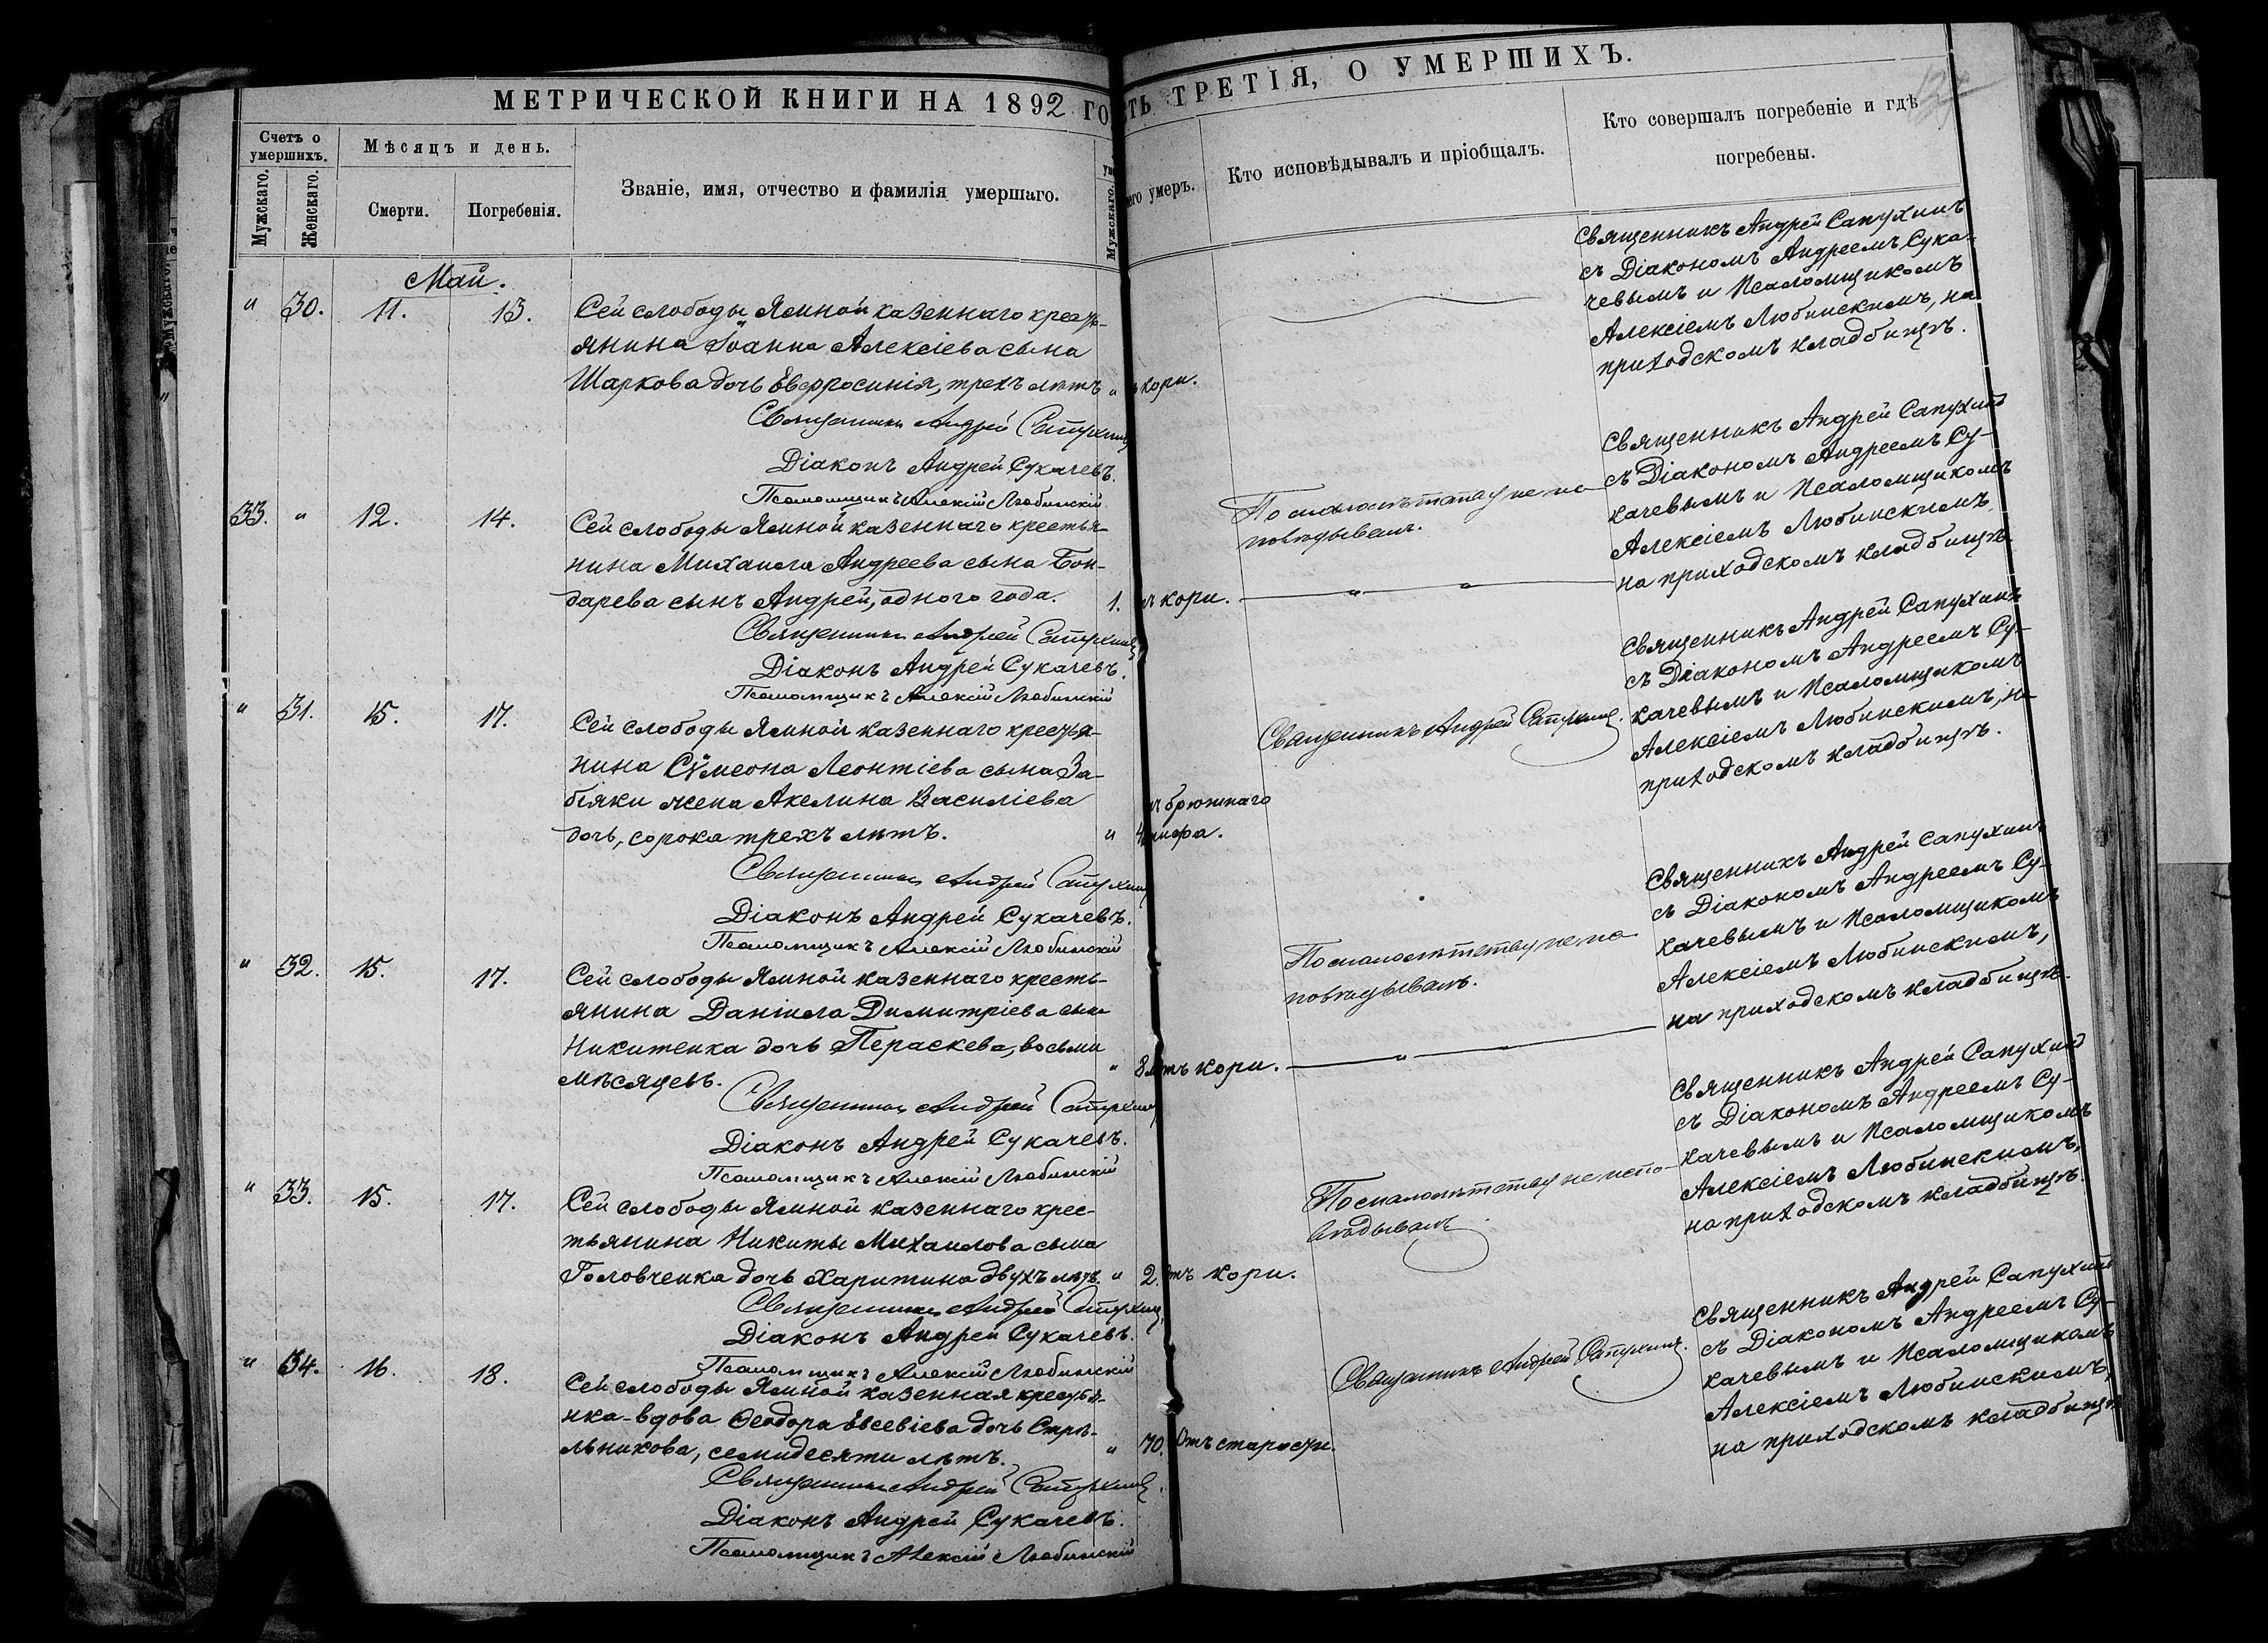 МЕТРИЧЕСКОЙ КНИГИ НА 1892 ГО
Счетъ о умершихъ.
Мужскаго.
Женскаго.
Мѣсяцъ и день.
Смерти.
Погребенія.
Званіе, имя, отчество и фамилія умершаго.
Мужскаго.
Май.
" 30. 11. 13.
Сей слободы Ямной казеннаго кресть-
янина Іоанна Алексіева сына
Шаркова дочь Евфросинія, трехъ лѣтъ "
Священникъ Андрей Сапухинъ
Діаконъ Андрей Сукачевъ.
Псаломщикъ Алексій Любинскій
33. " 12. 14.
Сей слободы Ямной казеннаго крестья-
нина Михаила Андреева сына Бон-
дарева сынъ Андрей, одного года. 1.
Священникъ Андрей Сапухинъ
Діаконъ Андрей Сукачевъ.
Псаломщикъ Алексій Любинскій
" 31. 15. 17.
Сей слободы Ямной казеннаго крестья-
нина Сѵмеона Леонтіева сына За-
біяки жена Акелина Василіева
дочь, сорока трехъ лѣтъ. " 4
Священникъ Андрей Сапухинъ
Діаконъ Андрей Сукачевъ.
Псаломщикъ Алексій Любинскій
" 32. 15. 17.
Сей слободы Ямной казеннаго кресть-
янина Даніила Димитріева сына
Никитенка дочь Параскева, восьми
мѣсяцевъ. " 8
Священникъ Андрей Сапухинъ
Діаконъ Андрей Сукачевъ.
Псаломщикъ Алексій Любинскій
" 33. 15. 17.
Сей слободы Ямной казеннаго крес-
тьянина Никиты Михаилова сына
Головченка дочь Харитина двухъ лѣтъ. " 2.
Священникъ Андрей Сапухинъ
Діаконъ Андрей Сукачевъ.
Псаломщикъ Алексій Любинскій
" 34. 16. 18.
Сей слободы Ямной казенная крестья-
нка-вдова Ѳеодора Евсевіева дочь Стрѣ-
льникова, семидесяти лѣтъ. " 70.
Священникъ Андрей Сапухинъ
Діаконъ Андрей Сукачевъ.
Псаломщикъ Алексій Любинскій
ТЬ ТРЕТІЯ, О УМЕРШИХЪ.
его умеръ.
Кто исповѣдывалъ и пріобщалъ.
Кто совершалъ погребеніе и гдѣ
погребены.
кори.
Священникъ Андрей Сапухинъ
съ Діакономъ Андреемъ Сука-
чевымъ и Псаломщикомъ
Алексіемъ Любинскимъ, на
приходскомъ кладбищѣ.
По малолѣтству не ис-
повѣдывалъ.
ъ кори.
Священникъ Андрей Сапухинъ
съ Діакономъ Андреемъ Су-
качевымъ и Псаломщикомъ
Алексіемъ Любинскимъ,
на приходскомъ кладбищѣ.
Священникъ Андрей Сапухинъ.
ъ брюшнаго
тифа.
Священникъ Андрей Сапухинъ
съ Діакономъ Андреемъ Су-
качевымъ и Псаломщикомъ
Алексіемъ Любинскимъ, на
приходскомъ кладбищѣ.
По малолѣтству не ис-
повѣдывалъ.
тъ кори.
Священникъ Андрей Сапухинъ
съ Діакономъ Андреемъ Су-
качевымъ и Псаломщикомъ
Алексіемъ Любинскимъ,
на приходскомъ кладбищѣ.
По малолѣтству не испо-
вѣдывалъ
тъ кори.
Священникъ Андрей Сапухинъ
съ Діакономъ Андреемъ Су-
качевымъ и Псаломщикомъ
Алексіемъ Любинскимъ,
на приходскомъ кладбищѣ.
Священникъ Андрей Сапухинъ.
Отъ старости.
Священникъ Андрей Сапухинъ
съ Діакономъ Андреемъ Су-
качевымъ и Псаломщикомъ
Алексіемъ Любинскимъ,
на приходскомъ кладбищѣ